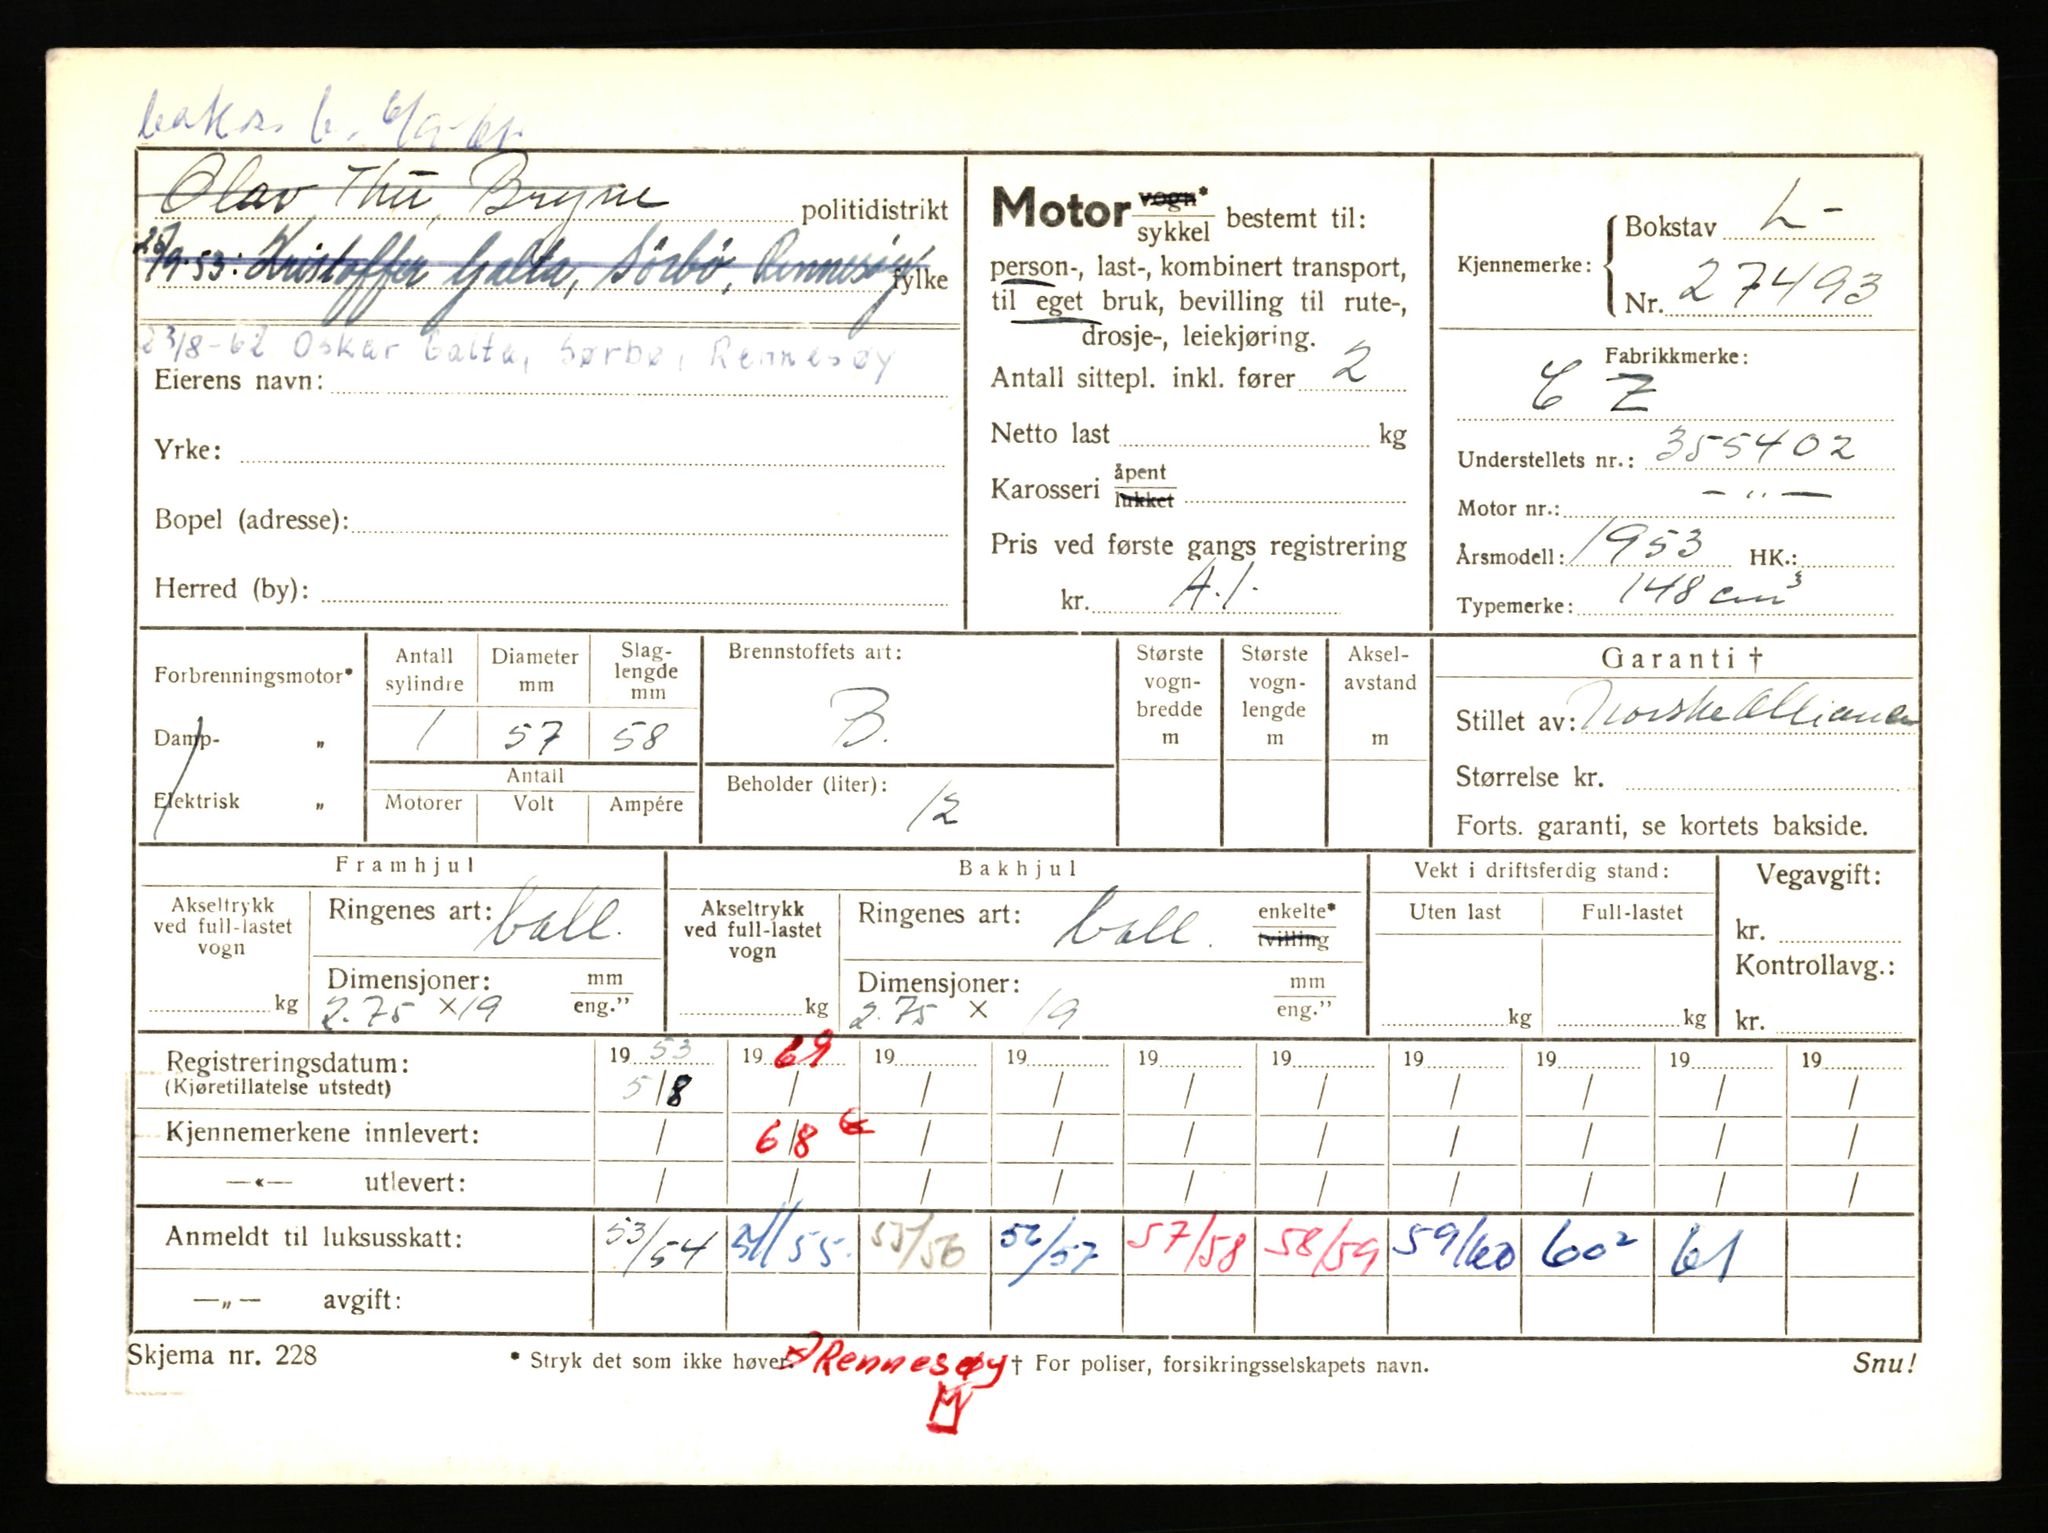 Olav Thu, Bryne politidistrikt
9.53: Kristoffer Galta, Sørbø, Rennesøy fylke
23/8-62 Oskar Galta, Sørbø, Rennesøy
Eierens navn:
Yrke:
Bopel (adresse):
Herred (by):
Motor vogn* sykkel bestemt til:
person-, last-, kombinert transport,
til eget bruk, bevilling til rute-,
drosje-, leiekjøring.
Antall sittepl. inkl. fører 2
Netto last kg
Karosseri åpent lukket
Pris ved første gangs registrering
kr. A.1.
Kjennemerke: Bokstav L-
Nr. 27493
Fabrikkmerke:
C Z
Understellets nr.: 355402
Motor nr.: — „ —
Årsmodell: 1953 HK.:
Typemerke: 148 cm³
Forbrenningsmotor*
Damp- „
Elektrisk „
Antall sylindre
Diameter mm
Slag-lengde mm
1 57 58
Antall
Motorer Volt Ampére
Brennstoffets art:
B.
Beholder (liter):
12
Største vogn-bredde m
Største vogn-lengde m
Aksel-avstand m
Garanti †
Stillet av: Norske Alliance
Størrelse kr.
Forts. garanti, se kortets bakside.
Framhjul
Akseltrykk ved full-lastet vogn
kg
Ringenes art: ball.
Dimensjoner: mm
2.75 × 19 eng.”
Bakhjul
Akseltrykk ved full-lastet vogn
kg
Ringenes art: ball. enkelte* tvilling
Dimensjoner: mm
2.75 × 19 eng.”
Vekt i driftsferdig stand:
Uten last Full-lastet
kg kg
Vegavgift:
kr.
Kontrollavg.:
kr.
Registreringsdatum: 19 53 19 69 19 19 19 19 19 19 19 19
(Kjøretillatelse utstedt) 5/8 / / / / / / / / /
Kjennemerkene innlevert: / 6/8 / / / / / / / /
—«— utlevert: / / / / / / / / /
Anmeldt til luksusskatt: 53/54 54/55. 55/56 56/57 57/58 58/59 59/60 60² 61
—„— avgift:
Skjema nr. 228 * Stryk det som ikke høver. x) Rennesøy † For poliser, forsikringsselskapets navn. Snu!
M